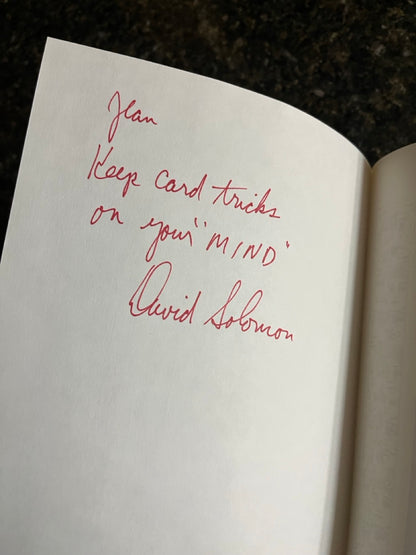 Jean
Keep card tricks
on your "MIND"
David Solomon